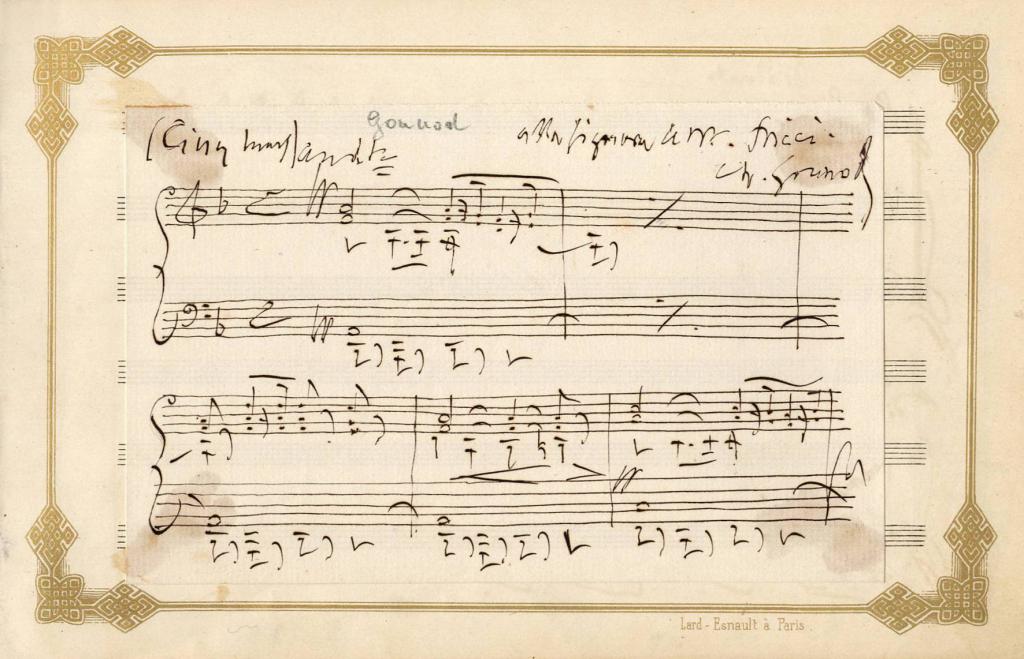 Gounod
(Cinq mars) alla Signora Fricci.
Ch. Gounod
Lard-Esnault à Paris